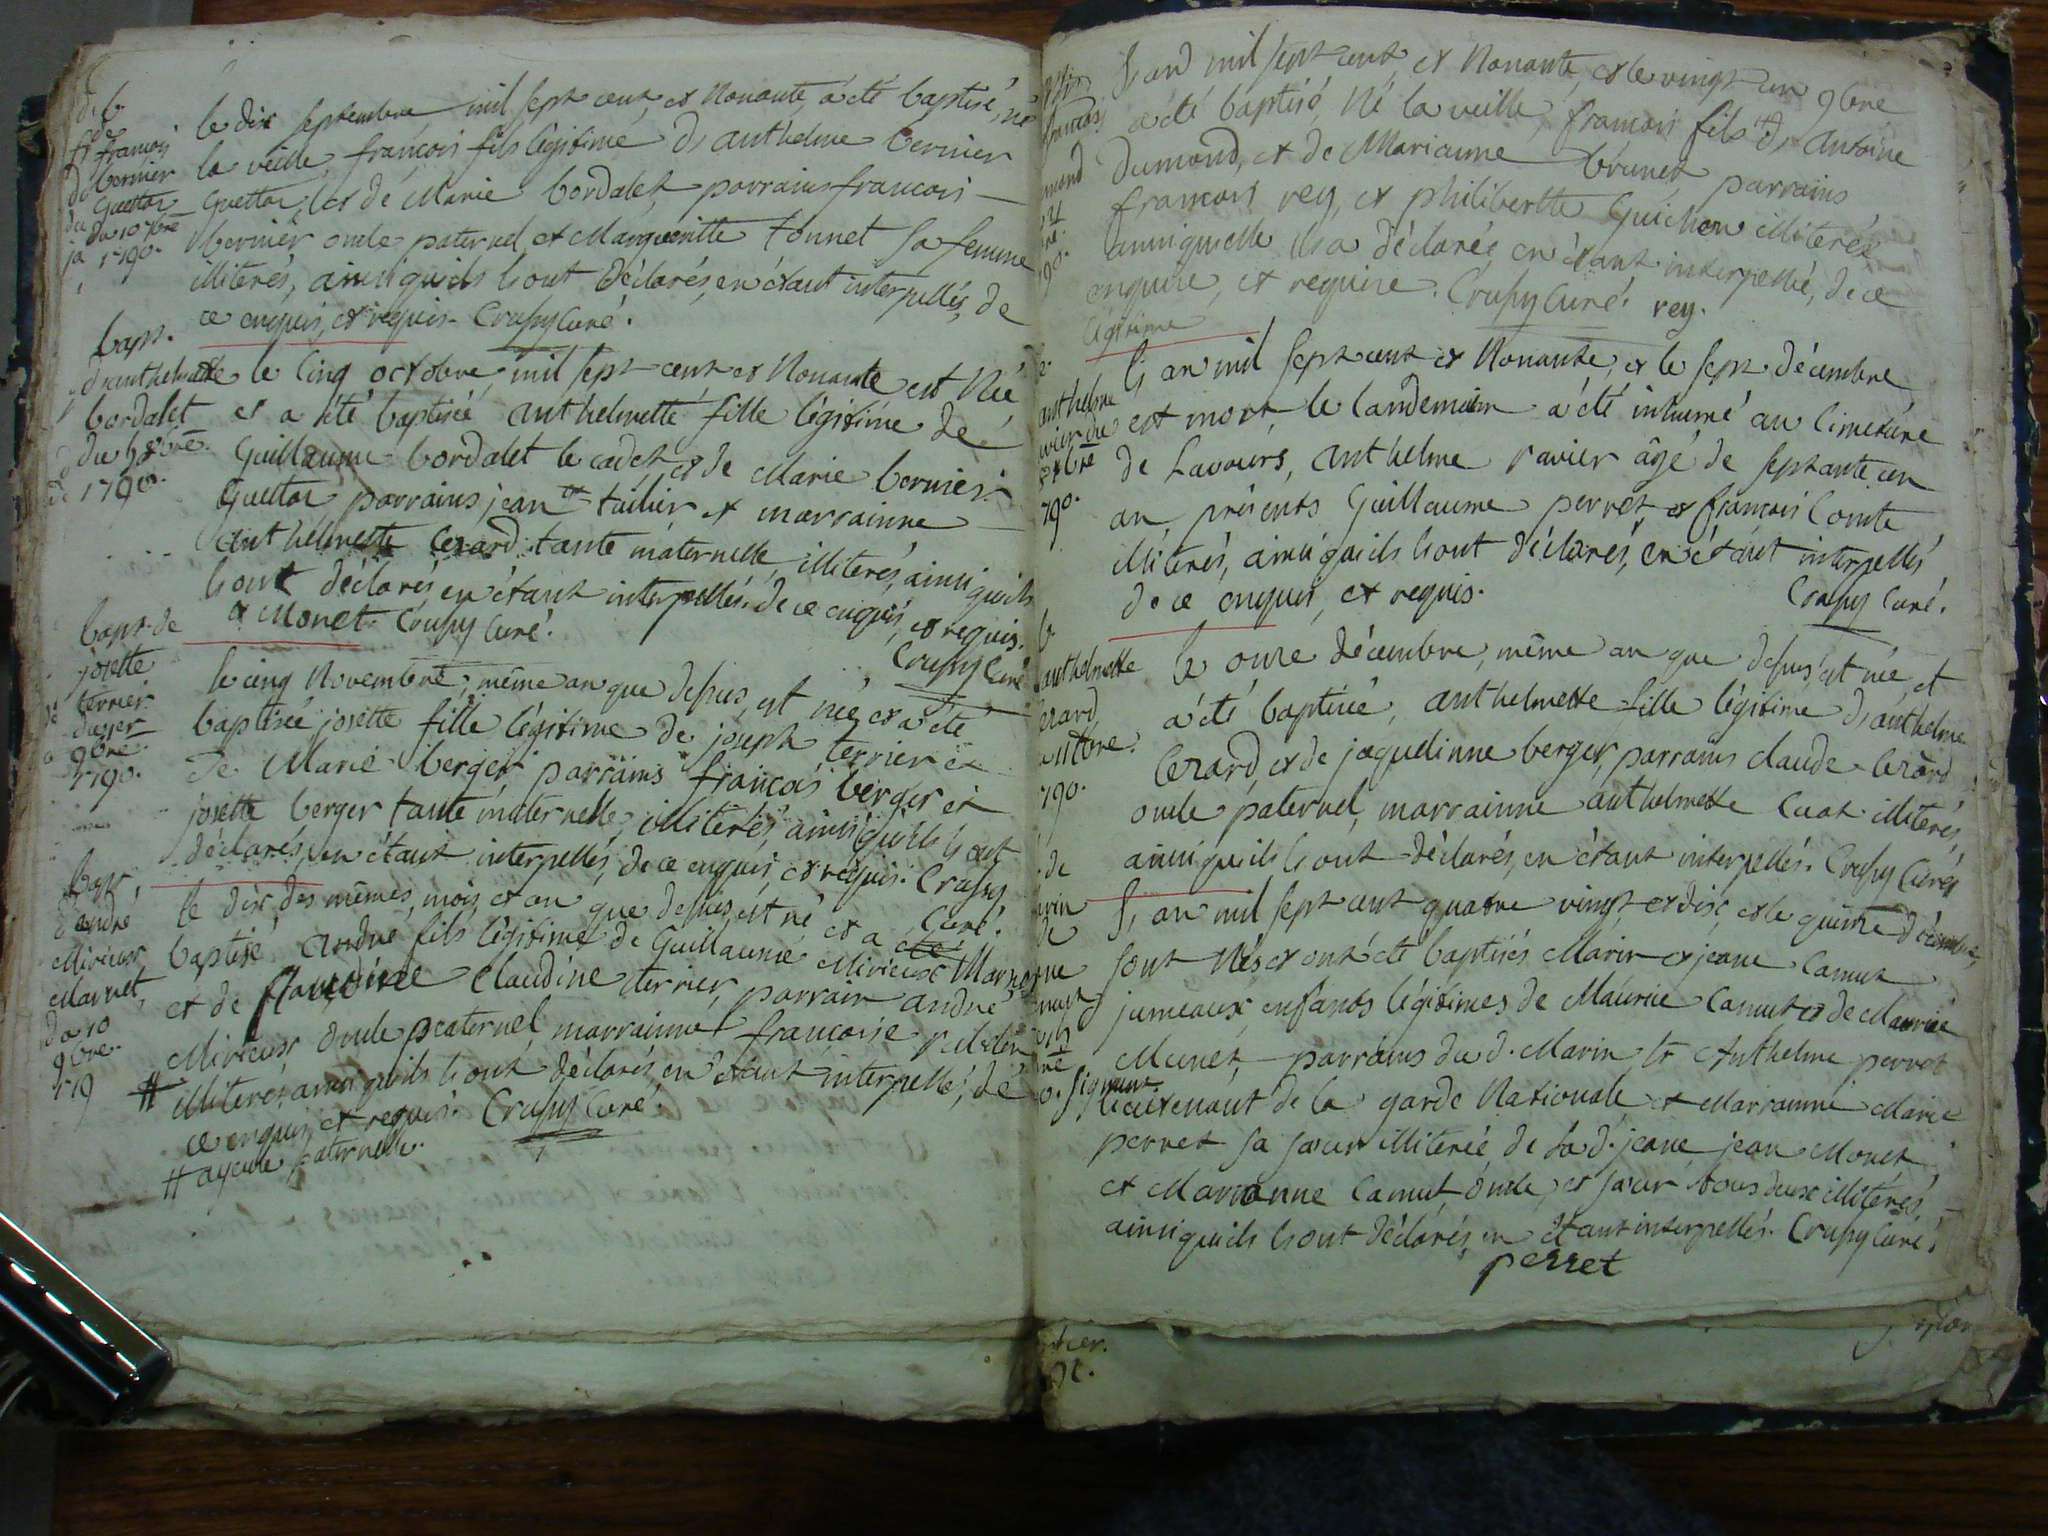 b
de
françois
bernier
Guettaz
du 10 7bre
1790.
le dix septembre mil sept cent et Nonante, a été baptisé, né
la veille, françois fils légitime d'anthelme bernier
Guettaz, et de Marie bordalet, parrains francois
bernier oncle paternel, et Margueritte tonnet sa femme
illiterés, ainsi quils l'ont déclarés, en étant interpellés, de
ce enquis, et requis. Crussy Curé.
bapt.
d'anthelmette
bordalet
du 5 8bre.
1790.
le cinq octobre, mil sept cent et Nonante est Née
et a été baptisée anthelmette fille légitime de
Guillaume bordalet le cadet et de Marie bernier
Guettaz parrains jean tailier et marrainne
anthelmette Cezard tante maternelle, illiterés, ainsi quils
l'ont déclarés en étant interpellés, de ce enquis, et requis.
Crussy Curé
bapt. de
josette
terrier
9bre.
1790.
le cinq Novembre, même an que dessus, est née, et a été
baptisée josette fille légitime de joseph terrier et
de Marie berger, parrains françois berger et
josette berger tante maternelle, illiterés, ainsi quils l'ont
déclarés, en étant interpellés, de ce enquis, et requis. Crussy
Curé.
bapt.
d'andré
Mirieux
Marnet,
du 10
9bre.
179
le dix, des mêmes, mois, et an que dessus, est né et a été
baptisé andré fils légitime de Guillaume Mirieux Marnet
et de Claudine terrier, parrain andré
Mirieux oncle paternel, marrainne françoise
# illiterés, ainsi quils l'ont déclarés, en étant interpellés, de
ce enquis, et requis. Crussy Curé.
# ayeule paternelle.
françois
mond
21
90.
L'an mil sept cent, et Nonante, et le vingt un 9bre
a été baptisé, Né la veille, francois fils d'Antoine
Dumond, et de Marianne brunet, parrains
francois rey, et philiberthe Guichon illiterée
ainsi quelle l'a déclarée, en étant interpellée, de ce
enquise, et requise. Crussy Curé. rey.
légitime
anthelme
790.
L'an mil sept cent et Nonante, et le sept décembre
est mort, le landemain a été inhumé au cimetiére
de Lavours, anthelme ravier âgé de septante un
an, présents Guillaume perret, et francois Comte
illiterés, ainsi quils l'ont déclarés, en étant interpellés
de ce enquis, et requis.
Crussy Curé.
b
anthelmette
Cezard
790.
le onze décembre, même an que dessus, est née, et
a été baptisée, anthelmette fille légitime d'anthelme
Cezard, et de jaqueline berger, parrains claude Cezard
oncle paternel, marrainne anthelmette illiterés,
ainsi quils l'ont déclarés, en étant interpellés. Crussy Curé
de
L'an mil sept cent quatre vingt et dix, et le quinze décembre,
sont Nés, et ont été baptisés Marin et jeane Camut
jumeaux, enfants légitimes de Maurice Camut et de Maurise
Munet, parrains du d. Marin, sr Anthelme perret
lieutenant de la garde Nationale et Marrainne Marie
perret sa sœur illiterée, de la d. jeane, jean Monet
et Marianne Camut, oncle, et sœur, tous deux illiterés,
ainsi quils l'ont déclarés, en étant interpellés. Crussy Curé.
perret